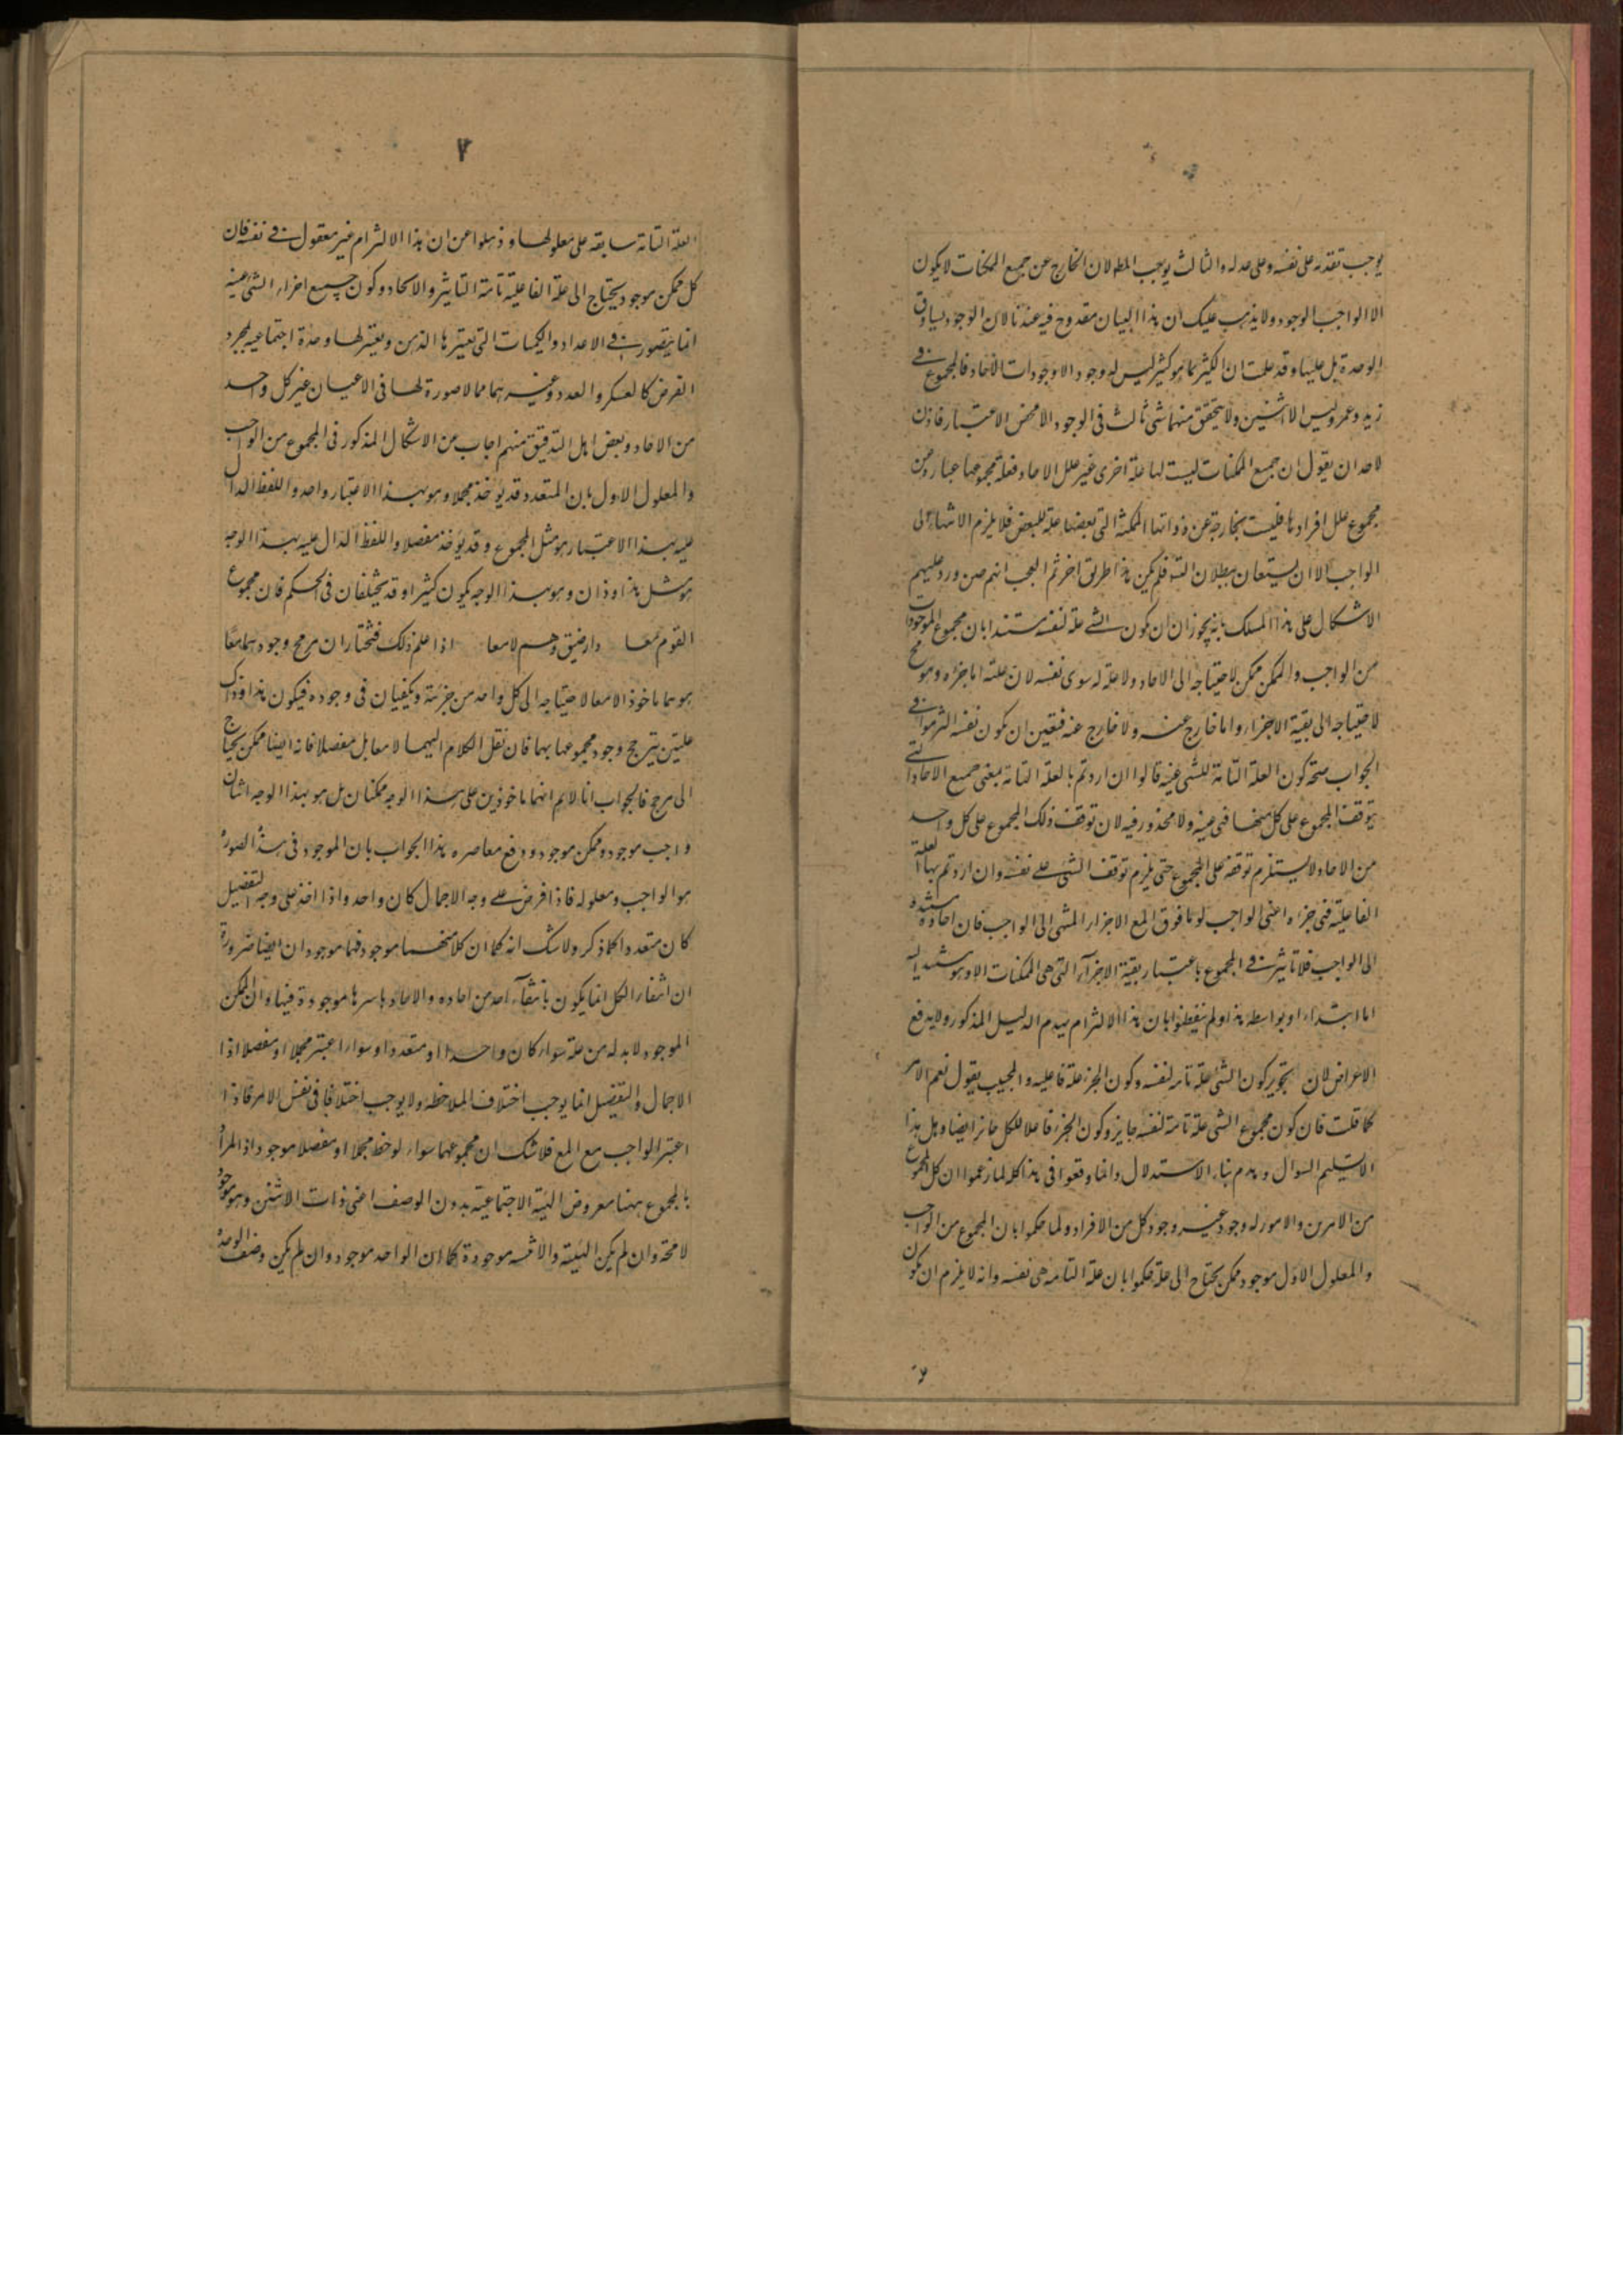 يوجب تقدمه على نفسه وعلى علله والثالث يوجب المط لان الخارج عن جميع الممكنات لا يكون
الا الواجب الوجود ولا يذهب عليك ان هذا البيان مقدوح فيه عندنا لان الوجود يساوق
الوحدة بل عليها وقد علمت ان الكثير بما هو كثير ليس له وجود الا وجودات الاحاد فالمجموع في
زيد وعمرو ليس الاثنين ولا يتحقق منهما شئ ثالث فى الوجود الا محض الاعتبار فاذن
لاحد ان يقول ان جميع الممكنات ليست لها علة اخرى غير علل الاحاد فعلة مجموعها عبارة عن
مجموع علل افرادها فليست بخارجة عن ذواتها الممكنة التى بعضها علة للبعض فلا يلزم الانتهاء الى
الواجب الا ان يستعان ببطلان التسـ فلم يكن هذا طريق اخر ثم العجب انهم حين ورد عليهم
الاشكال على هذا المسلك بانه يجوز ان ان يكون الشئ علة لنفسه مستندا بان مجموع الموجودات
من الواجب والممكن ممكن لاحتياجه الى الاحاد ولا علة له سوى نفسه لان علته اما جزؤه وهو مح
لاحتياجه الى بقية الاجزاء واما خارج عنه ولا خارج عنه فتعين ان يكون نفسه التزموا في
الجواب صحة كون العلة التامة للشى عينه قالوا ان اردتم بالعلة التامة بمعنى جميع الاحاد التى
يتوقف المجموع على كل منها فهى عينه ولا محذور فيه لان توقف ذلك المجموع على كل واحد
من الاحاد لا يستلزم توقفه على المجموع حتى يلزم توقف الشئ على نفسه وان اردتم بها العلة
الفاعلية فهى جزءه اعنى الواجب او ما فوق المع الاجزاء المنتهى الى الواجب فان احاده مستندة
الى الواجب فلا تاثير في المجموع باعتبار بقية الاجزاء التى هى الممكنات الا وهو مستند اليه
اما ابتداء او بواسطة هذا ولم يتفطنوا بان هذا الالتزام يهدم الدليل المذكور ولا يدفع
الاعراض لان تجويز كون الشئ علة تامة لنفسه وكون الجزء علة فاعليه والمجيب يقول نعم الامر
كما قلت فان كون مجموع الشى علة تامة لنفسه جايز وكون الجزء فاعلا للكل جائز ايضا وهل هذا
الا تسليم السوال وهدم بناء الاستدلال وانما وقعوا فى هذا كله لما زعموا ان كل مجموع
من الامرين والامور له وجود غير وجود كل من الافراد ولما حكموا بان المجموع من الواجب
والمعلول الاول موجود ممكن يحتاج الى علة حكموا بان علة التامة هى نفسه وانه لا يلزم ان يكون
٧
العلة التامة سابقة على معلولها وذهلوا عن ان هذا الالتزام غير معقول في نفسه فان
كل ممكن موجود يحتاج الى علة الفاعلية تامة التاثير والايجاد وكون جميع اجزاء الشئ عينه
انما يتصور في الاعداد والكميات التى يعتبرها الذهن ويعتبر لها وحدة اجتماعيه بمجرد
الفرض كالعسكر والعدد وغيرهما مما لا صورة لها فى الاعيان غير كل واحد
من الاحاد وبعض اهل التدقيق منهم اجاب من الاشكال المذكور فى المجموع من الواجب
والمعلول الاول بان المتعدد قد يؤخذ مجملا وهو بهذا الاعتبار واحد واللفظ الدال
عليه بهذا الاعتبار هو مثل المجموع وقد يؤخذ مفصلا واللفظ الدال عليه بهذا الوجه
هو مثل هذا وذان وهو بهذا الوجه يكون كثيرا وقد يختلفان فى الحكم فان مجموع
القوم معا دار ضيق وهم لا معا اذا علم ذلك فنختار ان مرجح وجودهما معا
هو هما ماخوذا لا معا لاحتياجه الى كل واحد من جزئيه ويكفيان فى وجوده فيكون هذا وذاك
علتين يترجح وجود مجموعهما بهما فان نقل الكلام اليهما لا معا بل مفصلا فانه ايضا ممكن يحتاج
الى مرجح فالجواب انا لا نم انهما ماخوذين على هذا الوجه ممكنان بل هو بهذا الوجه اثنان
واجب موجود وممكن موجود ودفع معاصره هذا الجواب بان الموجود فى هذه الصورة
هو الواجب ومعلوله فاذا فرض على وجه الاجمال كان واحد واذا اخذ على وجه التفصيل
كان متعددا كما ذكر ولا شك انه كما ان كلا منهما موجود فهما موجودان ايضا ضرورة
ان انتفاء الكل انما يكون بانتفاء احد من احاده والاحاد باسرها موجودة فيها وان الممكن
الموجود لا بد له من علة سواء كان واحدا او متعددا وسواء اعتبر مجملا او مفصلا اذا
الاجمال والتفصيل انما يوجب اختلاف الملاحظة ولا يوجب اختلافا فى نفس الامر فاذا
اعتبر الواجب مع المع فلا شك ان مجموعهما سواء لوحظ مجملا او مفصلا موجود اذ المراد
بالمجموع ههنا معروض الهيئة الاجتماعية بدون الوصف اعنى ذات الاثنين وهو موجود
لا محة وان لم يكن الهيئة والاثنينية موجودة كما ان الواحد موجود وان لم يكن وصف الوحدة